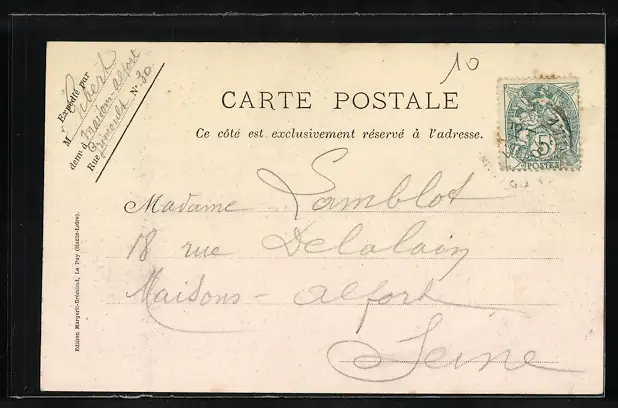 Expédié par
M
demt à Maisons-Alfort
Rue N° 30
10
CARTE POSTALE
Ce côté est exclusivement réservé à l'adresse.
5c
POSTES
Madame Lamblot
18 rue Delalain
Maisons-Alfort
Seine
Edition Margerit-Brémond, Le Puy (Haute-Loire).